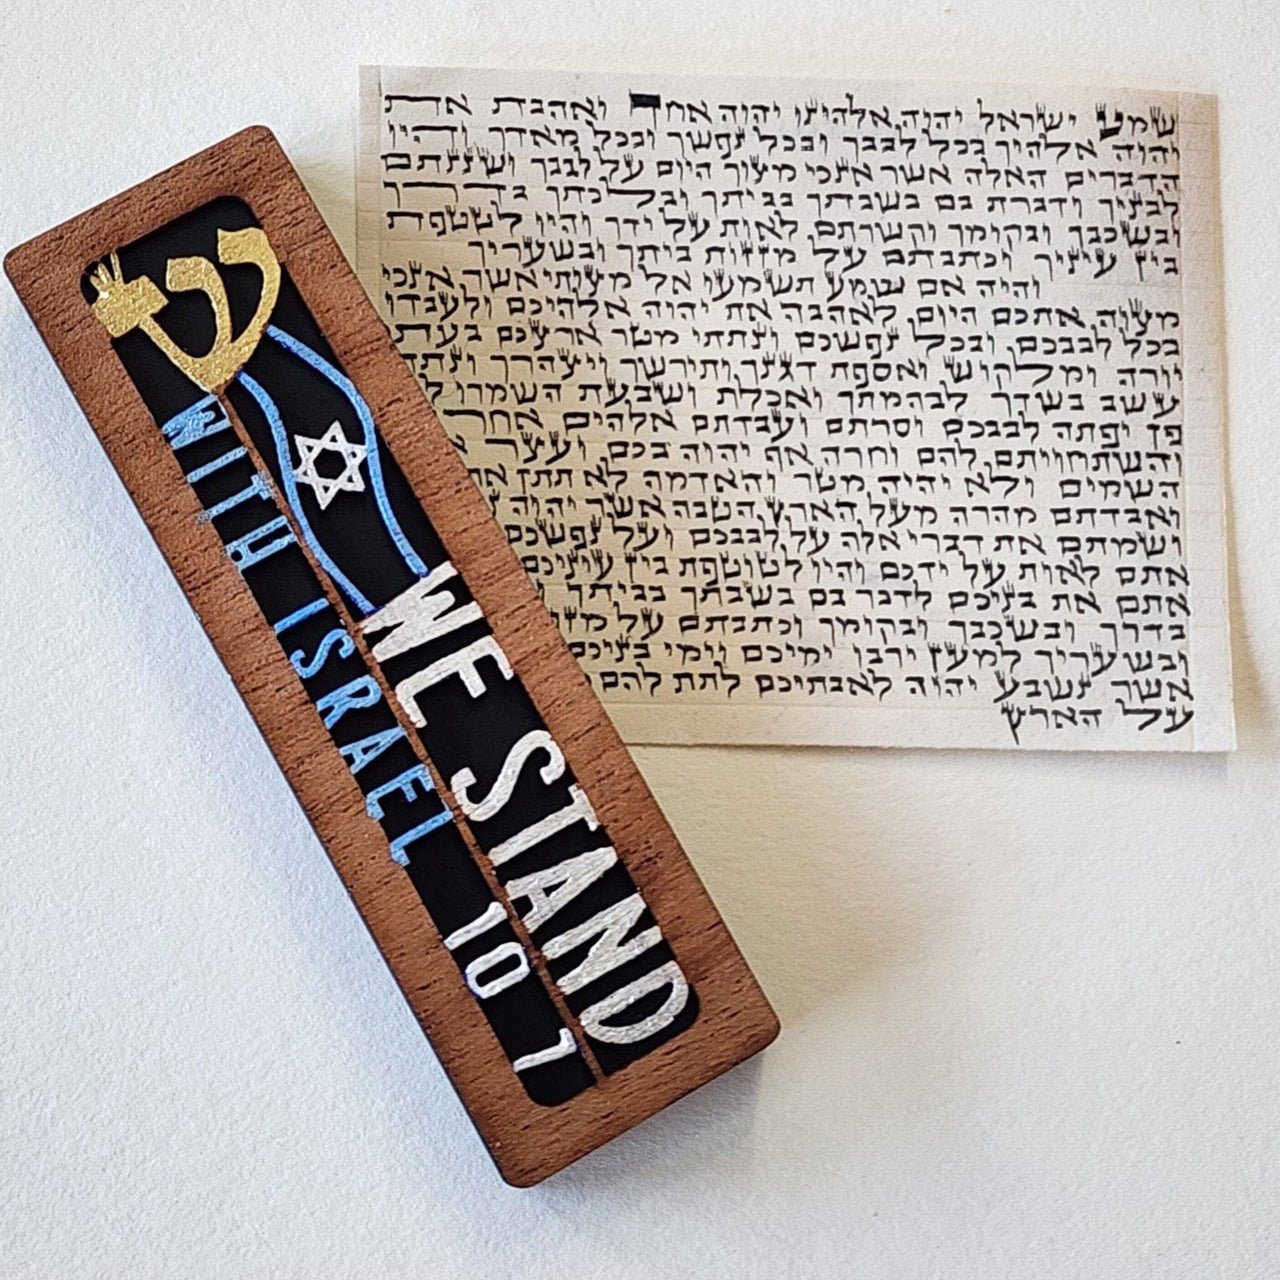 ש
WE STAND
WITH ISRAEL 10 7
שמע ישראל יהוה אלהינו יהוה אחד ואהבת את
יהוה אלהיך בכל לבבך ובכל נפשך ובכל מאדך והיו
הדברים האלה אשר אנכי מצוך היום על לבבך ושננתם
לבניך ודברת בם בשבתך בביתך ובלכתך בדרך
ובשכבך ובקומך וקשרתם לאות על ידך והיו לטטפת
בין עיניך וכתבתם על מזזות ביתך ובשעריך
והיה אם שמע תשמעו אל מצותי אשר אנכי
מצוה אתכם היום לאהבה את יהוה אלהיכם ולעבדו
בכל לבבכם ובכל נפשכם ונתתי מטר ארצכם בעתו
יורה ומלקוש ואספת דגנך ותירשך ויצהרך ונתתי
עשב בשדך לבהמתך ואכלת ושבעת השמרו
פן יפתה לבבכם וסרתם ועבדתם אלהים אחרים
והשתחויתם להם וחרה אף יהוה בכם ועצר
השמים ולא יהיה מטר והאדמה לא תתן
ואבדתם מהרה מעל הארץ הטבה אשר יהוה
ושמתם את דברי אלה על לבבכם ועל נפשכם
אתם לאות על ידכם והיו לטוטפת בין עיניכם
אתם את בניכם לדבר בם בשבתך בביתך
בדרך ובשכבך ובקומך וכתבתם על
ובשעריך למען ירבו ימיכם וימי בניכם
אשר נשבע יהוה לאבתיכם לתת להם
על הארץ